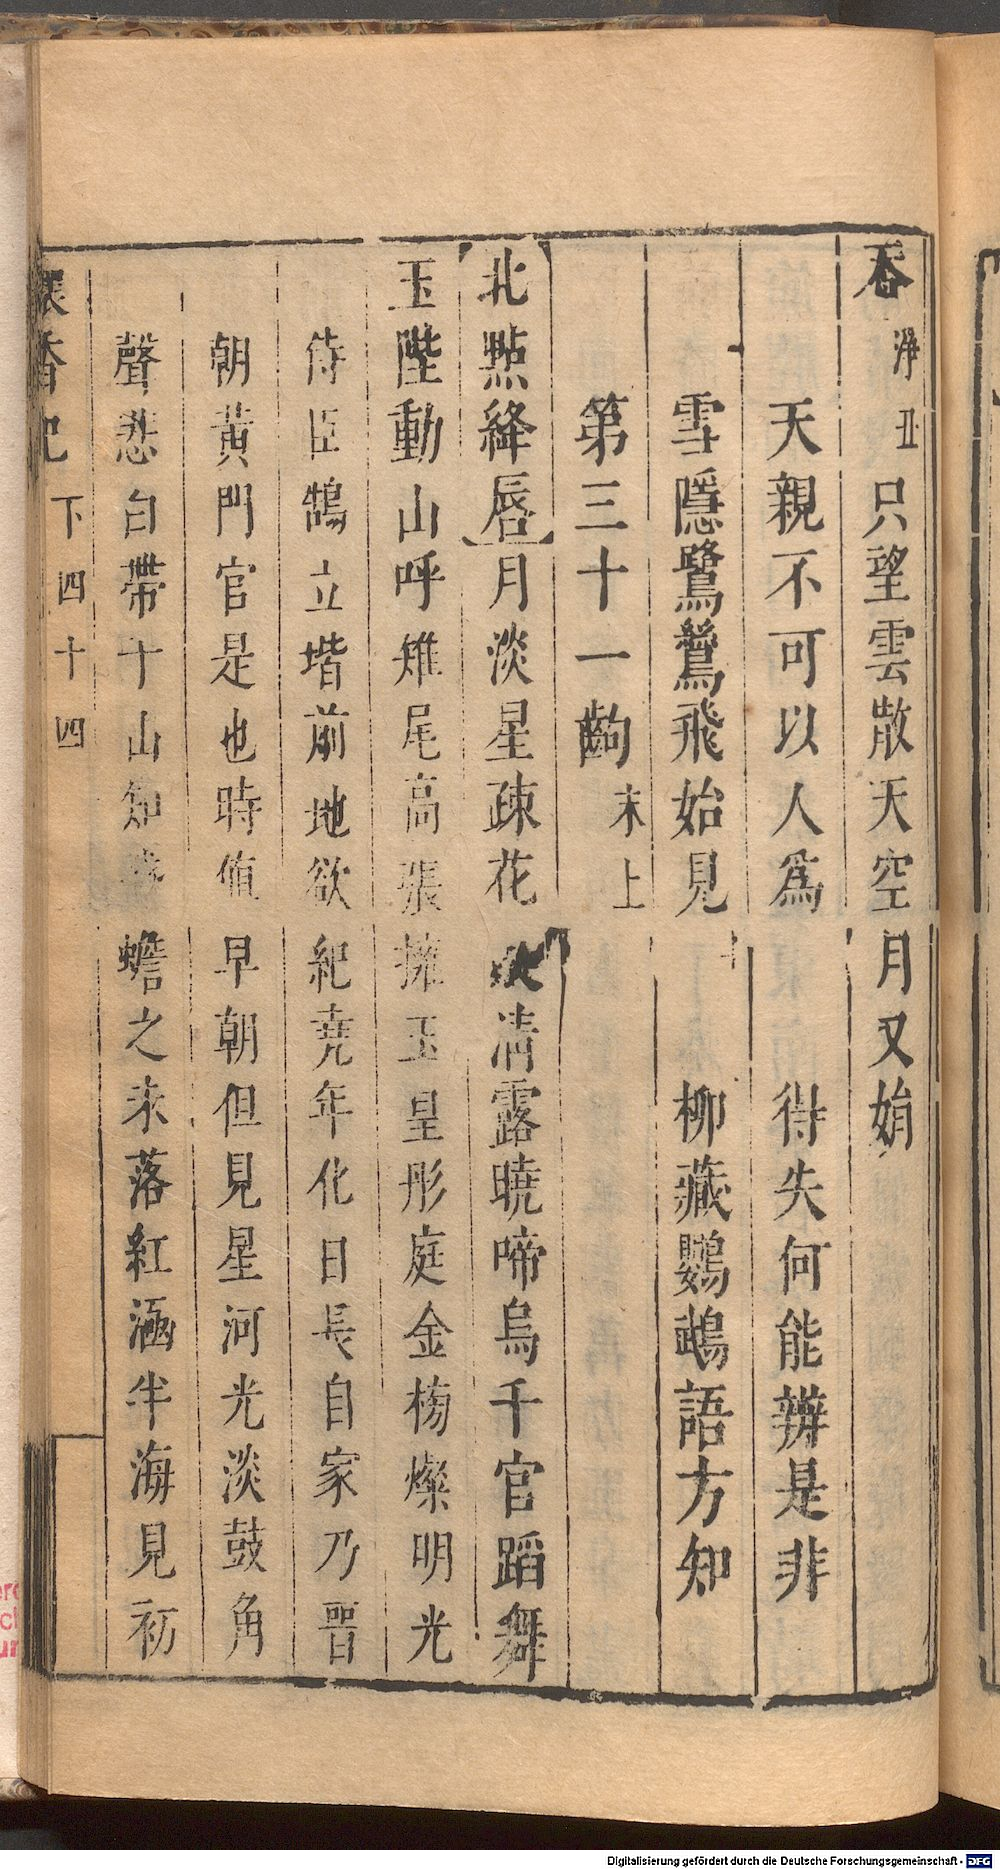 吞淨丑只望雲散天空月又娟
天親不可以人爲 得失何能辨是非
雪隱鷺鷥飛始見 柳藏鸚鵡語方知
第三十一齣末上
【北點絳唇】月淡星疎花 清露曉啼烏千官蹈舞
玉陛動山呼雉尾高張擁玉皇彤庭金榜燦明光
侍臣鵠立堦前地欲紀堯年化日長自家乃晋
朝黃門官是也時值早朝但見星河光淡鼓角
聲悲白帶千山知 蟾之未落紅涵半海見初
香記 下四十四
Digitalisierung gefördert durch die Deutsche Forschungsgemeinschaft - DFG